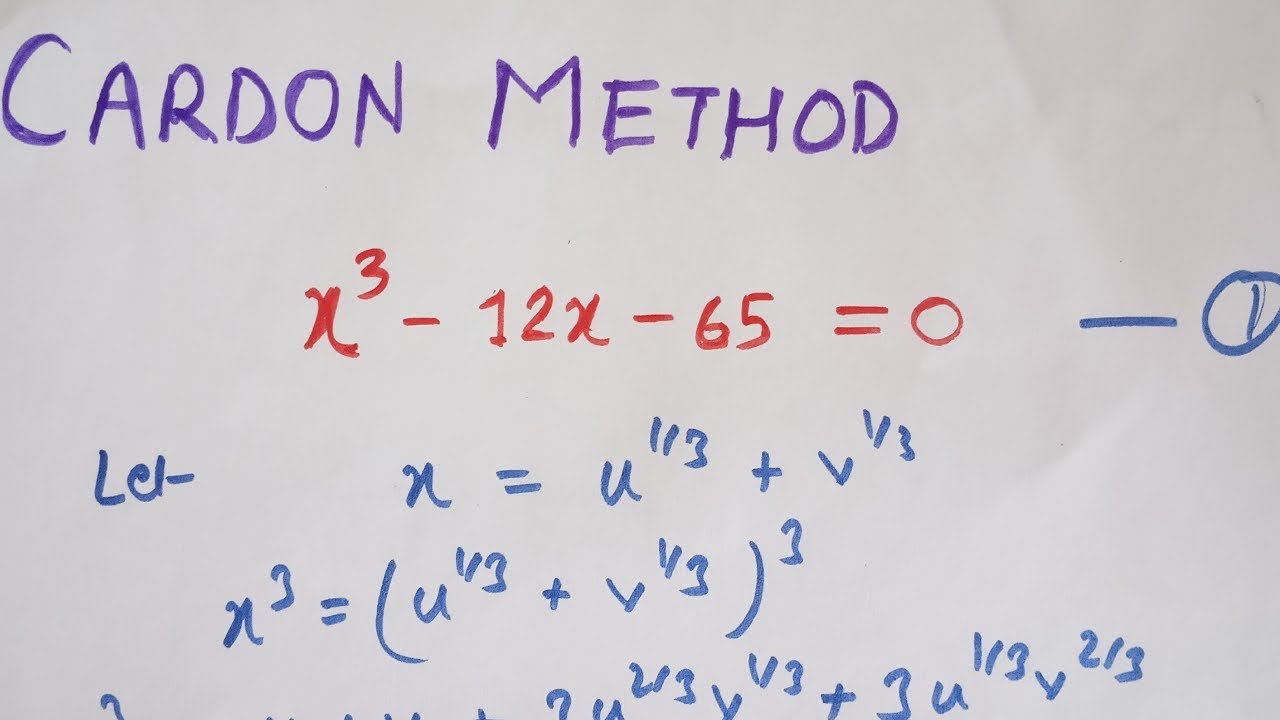 CARDON METHOD
x³ - 12x - 65 = 0 — ①
Let x = u^1/3 + v^1/3
x³ = (u^1/3 + v^1/3)³
3u^2/3 v^1/3 + 3u^1/3 v^2/3